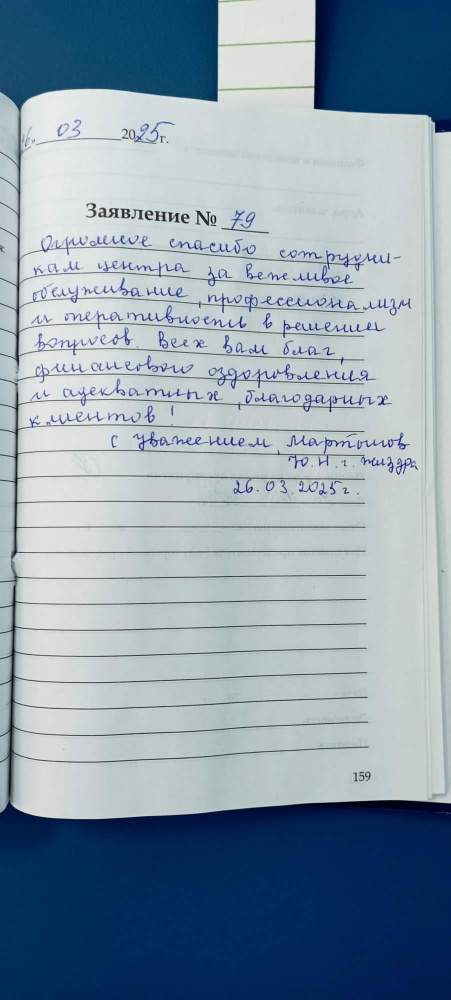 26. 03 2025г.
Заявление № 79
Огромное спасибо сотрудни-
кам центра за вежливое
обслуживание, профессионализм
и оперативность в решении
вопросов. Всех вам благ,
финансового оздоровления
и адекватных, благодарных
клиентов!
С уважением, Мартышов
Ю.Н. г. Жиздра
26.03.2025г.
159